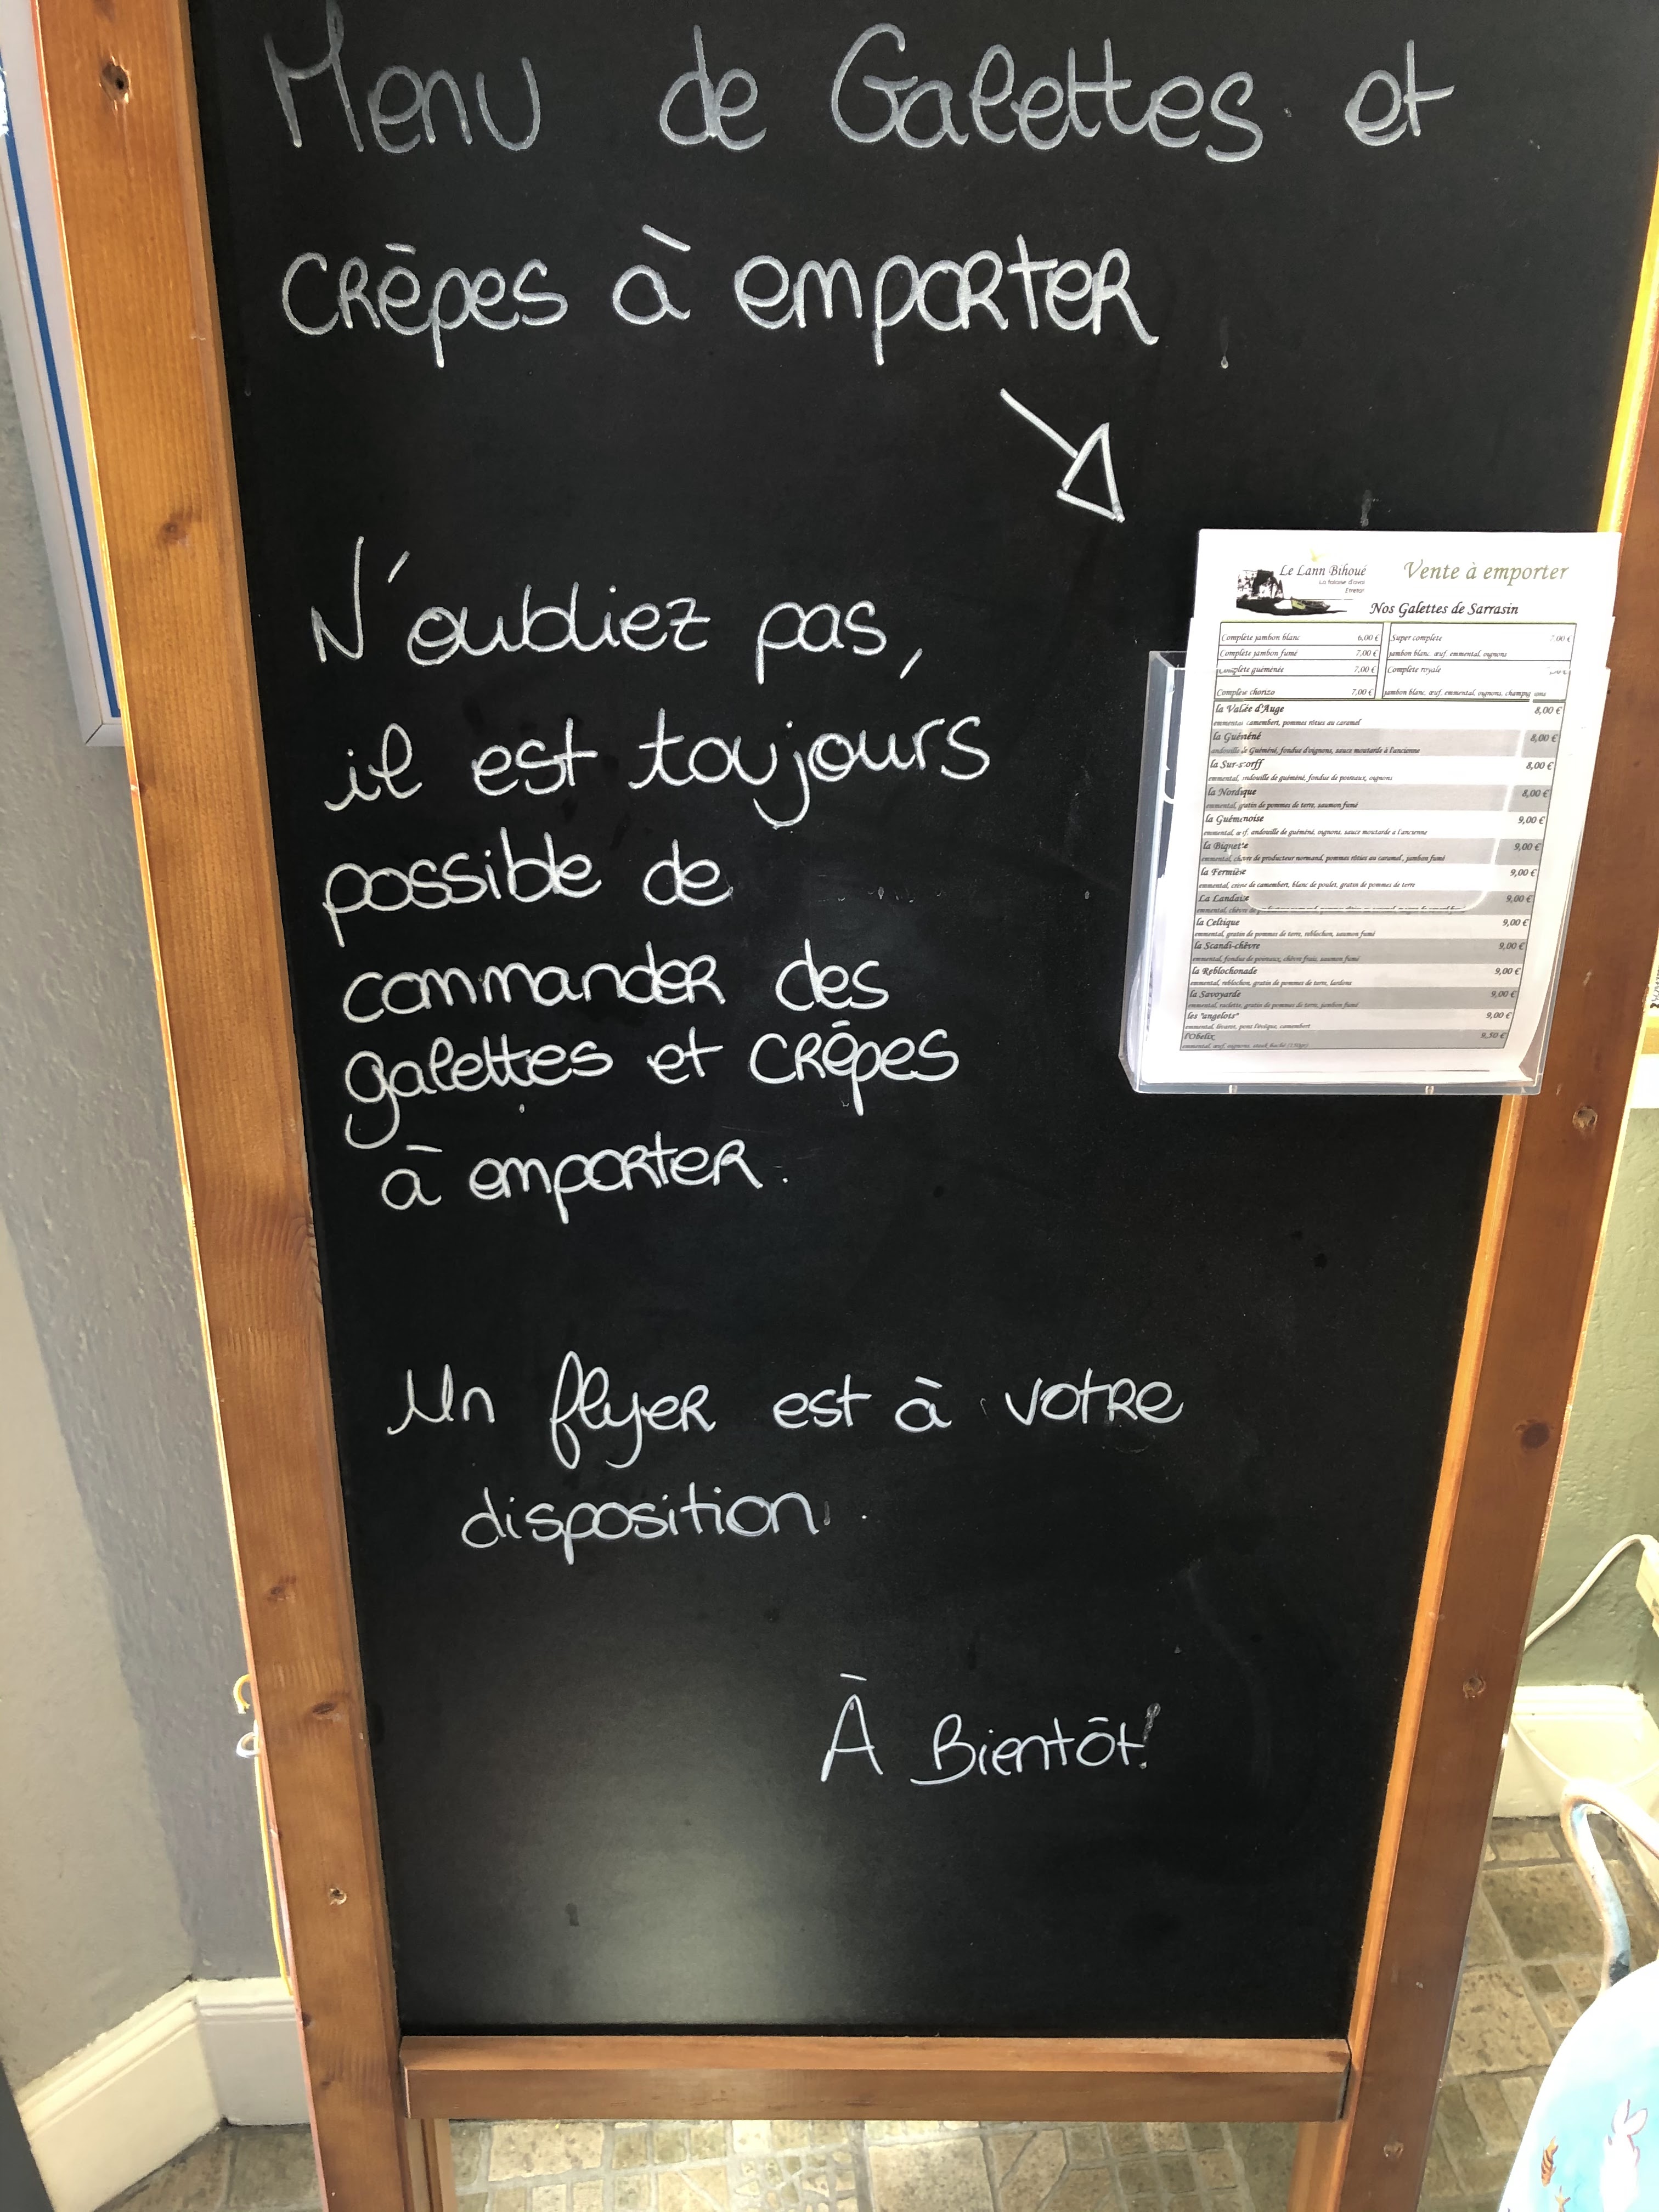 Menu de Galettes et
crêpes à emporter
N'oubliez pas,
il est toujours
possible de
commander des
galettes et crêpes
à emporter.
Un flyer est à votre
disposition.
À Bientôt!
Le Lann Bihoué
Vente à emporter
Nos Galettes de Sarrasin
Complète jambon blanc 6,00 €
Complète jambon fumé 7,00 €
Complète guémenée 7,00 €
Complète chorizo 7,00 €
Super complète 7,00 €
jambon blanc, œuf, emmental, oignons
Complète royale
jambon blanc, œuf, emmental, oignons, champignons
la Vallée d'Auge 8,00 €
emmental, camembert, pommes rôties au caramel
la Guéméné 8,00 €
andouille de Guéméné, fondue d'oignons, sauce moutarde à l'ancienne
la Sur-scorff 8,00 €
emmental, andouille de guéméné, fondue de poireaux, oignons
la Nordique 8,00 €
emmental, gratin de pommes de terre, saumon fumé
la Guémenoise 9,00 €
emmental, œuf, andouille de guéméné, oignons, sauce moutarde à l'ancienne
la Biquette 9,00 €
emmental, chèvre de producteur normand, pommes rôties au caramel, jambon fumé
la Fermière 9,00 €
emmental, crème de camembert, blanc de poulet, gratin de pommes de terre
La Landaise 9,00 €
emmental, chèvre
la Celtique 9,00 €
emmental, gratin de pommes de terre, reblochon, saumon fumé
la Scandi-chèvre 9,00 €
emmental, fondue de poireaux, chèvre frais, saumon fumé
la Reblochonade 9,00 €
emmental, reblochon, gratin de pommes de terre, lardons
la Savoyarde 9,00 €
emmental, raclette, gratin de pommes de terre, jambon fumé
les "angelots" 9,00 €
emmental, livarot, pont l'évêque, camembert
l'Obélix 8,50 €
emmental, œuf, oignons, steak haché